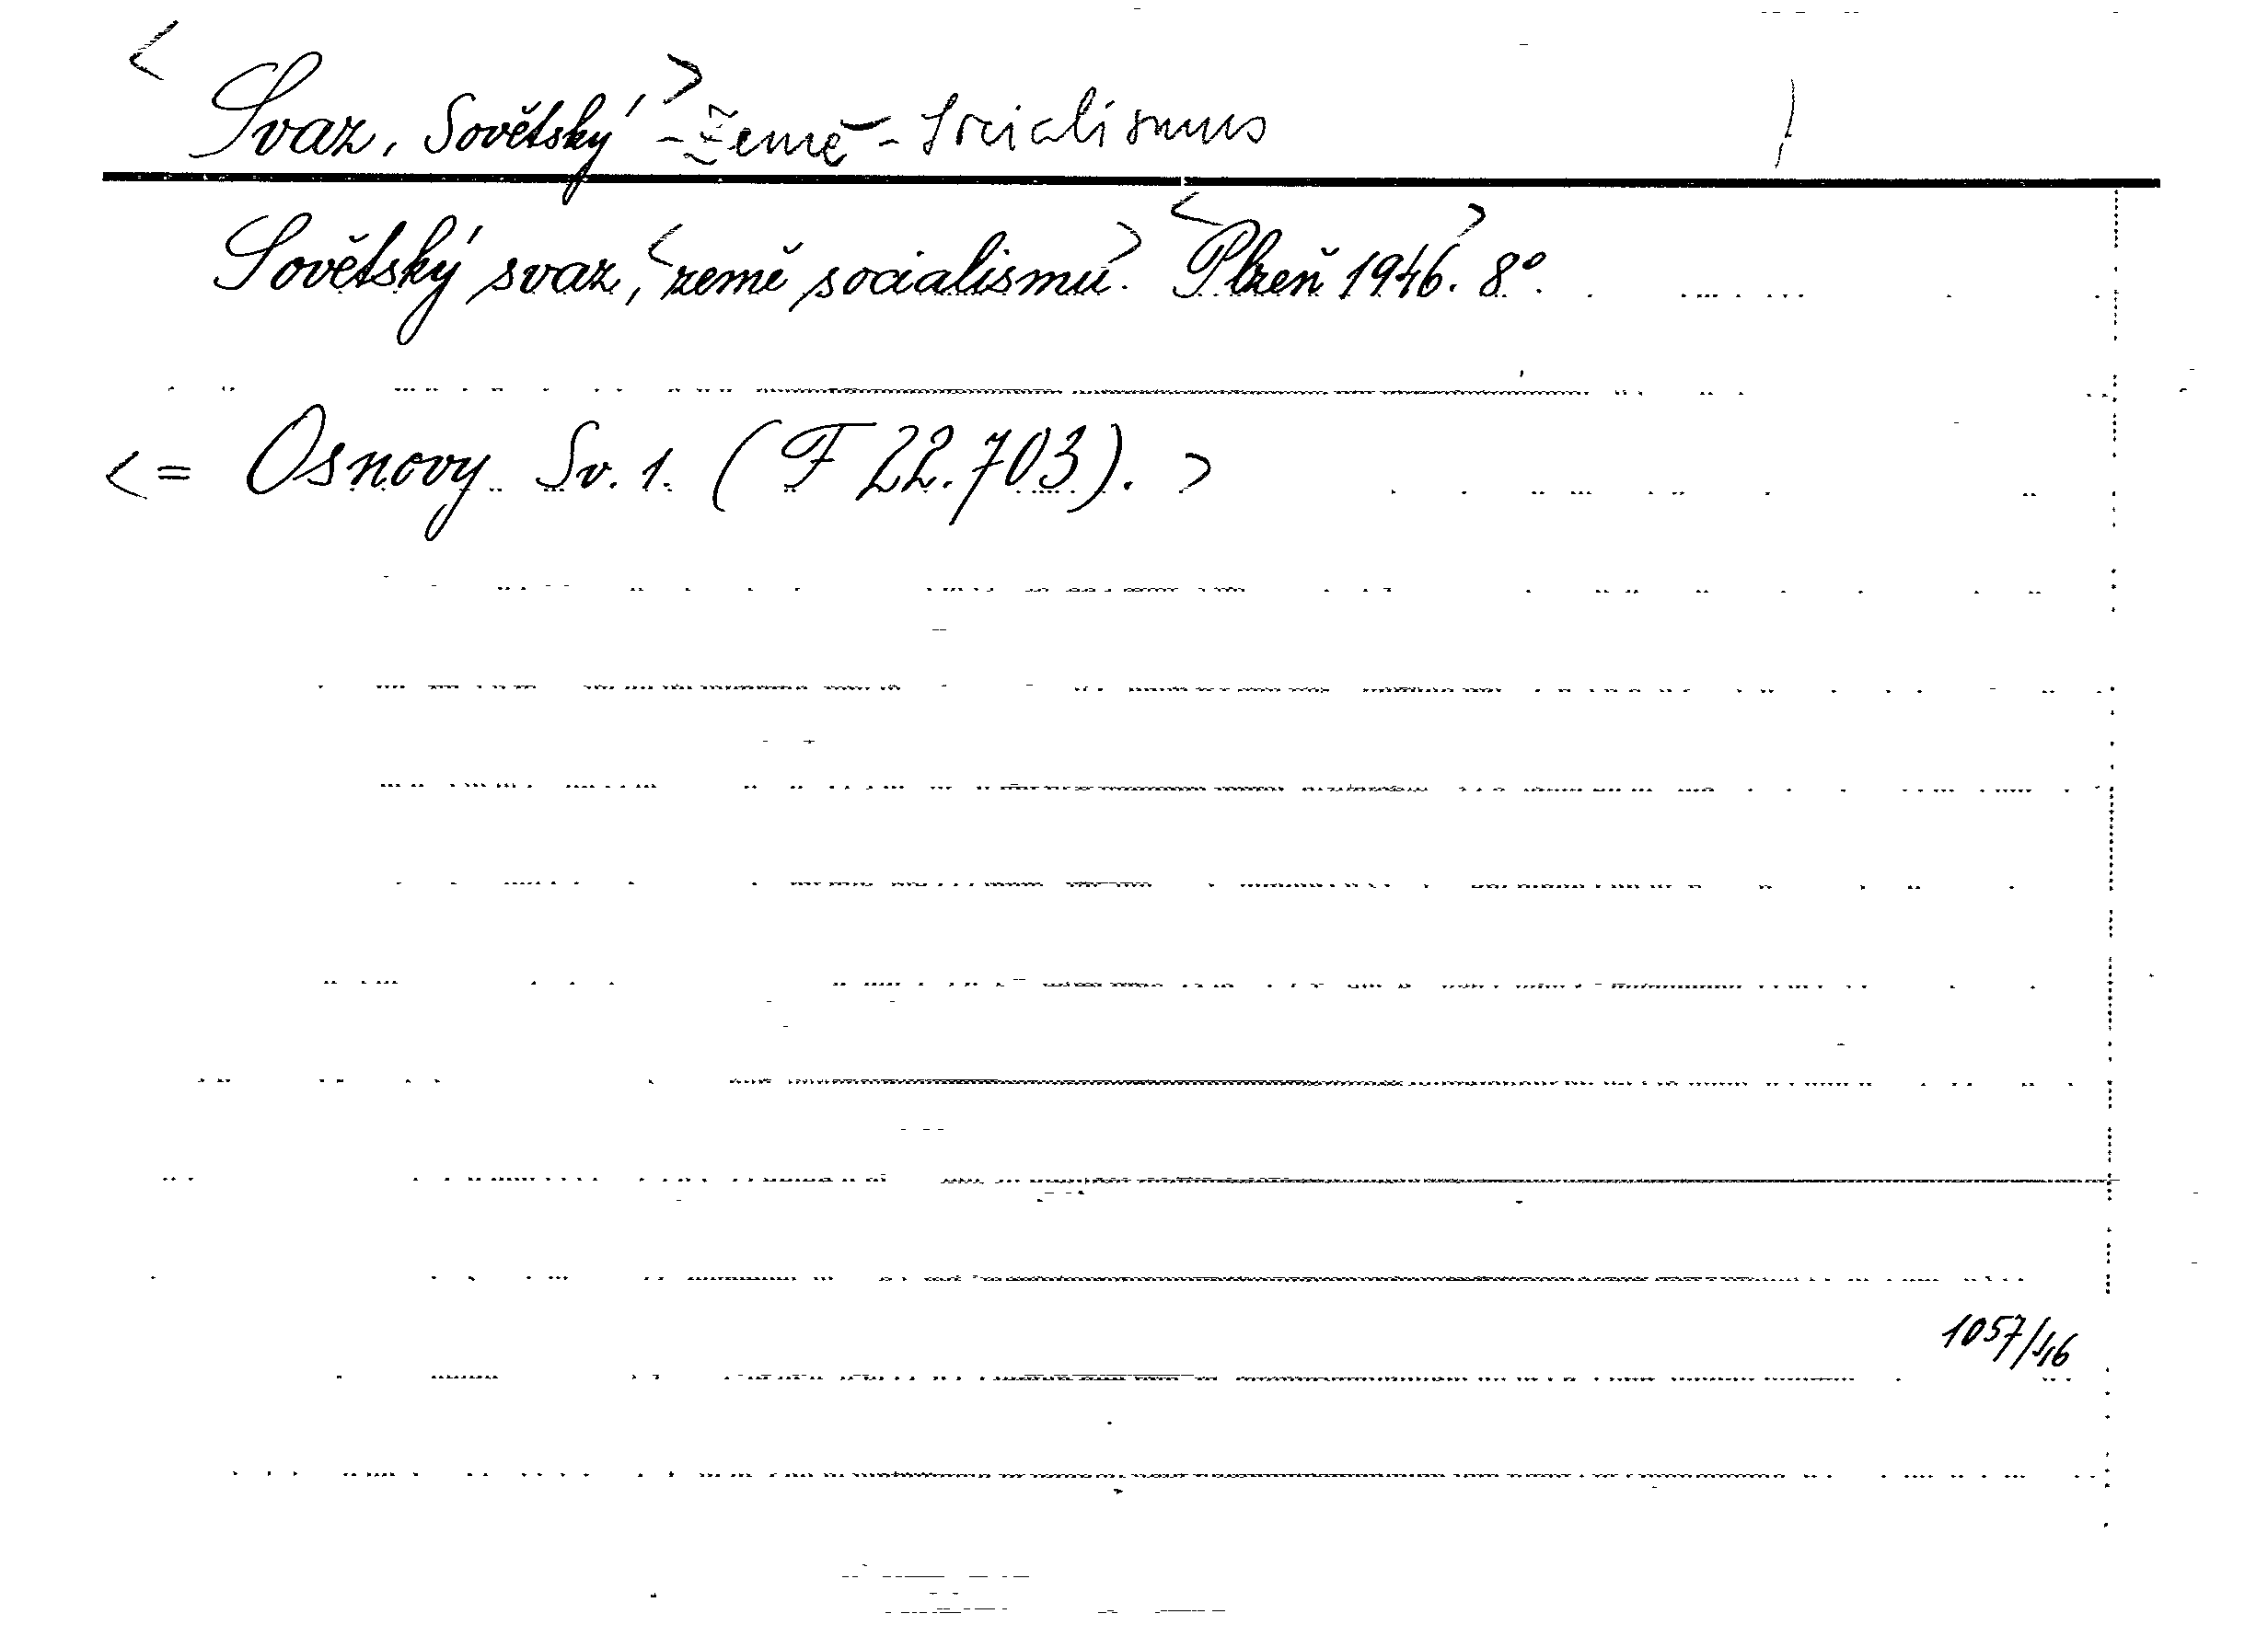 <Svaz, Sovětský> - Země - Socialismus
Sovětský svaz, <země socialismu>. <Plzeň 1946>. 8°.
<= Osnovy Sv. 1. (F 22.703).>
1057/46